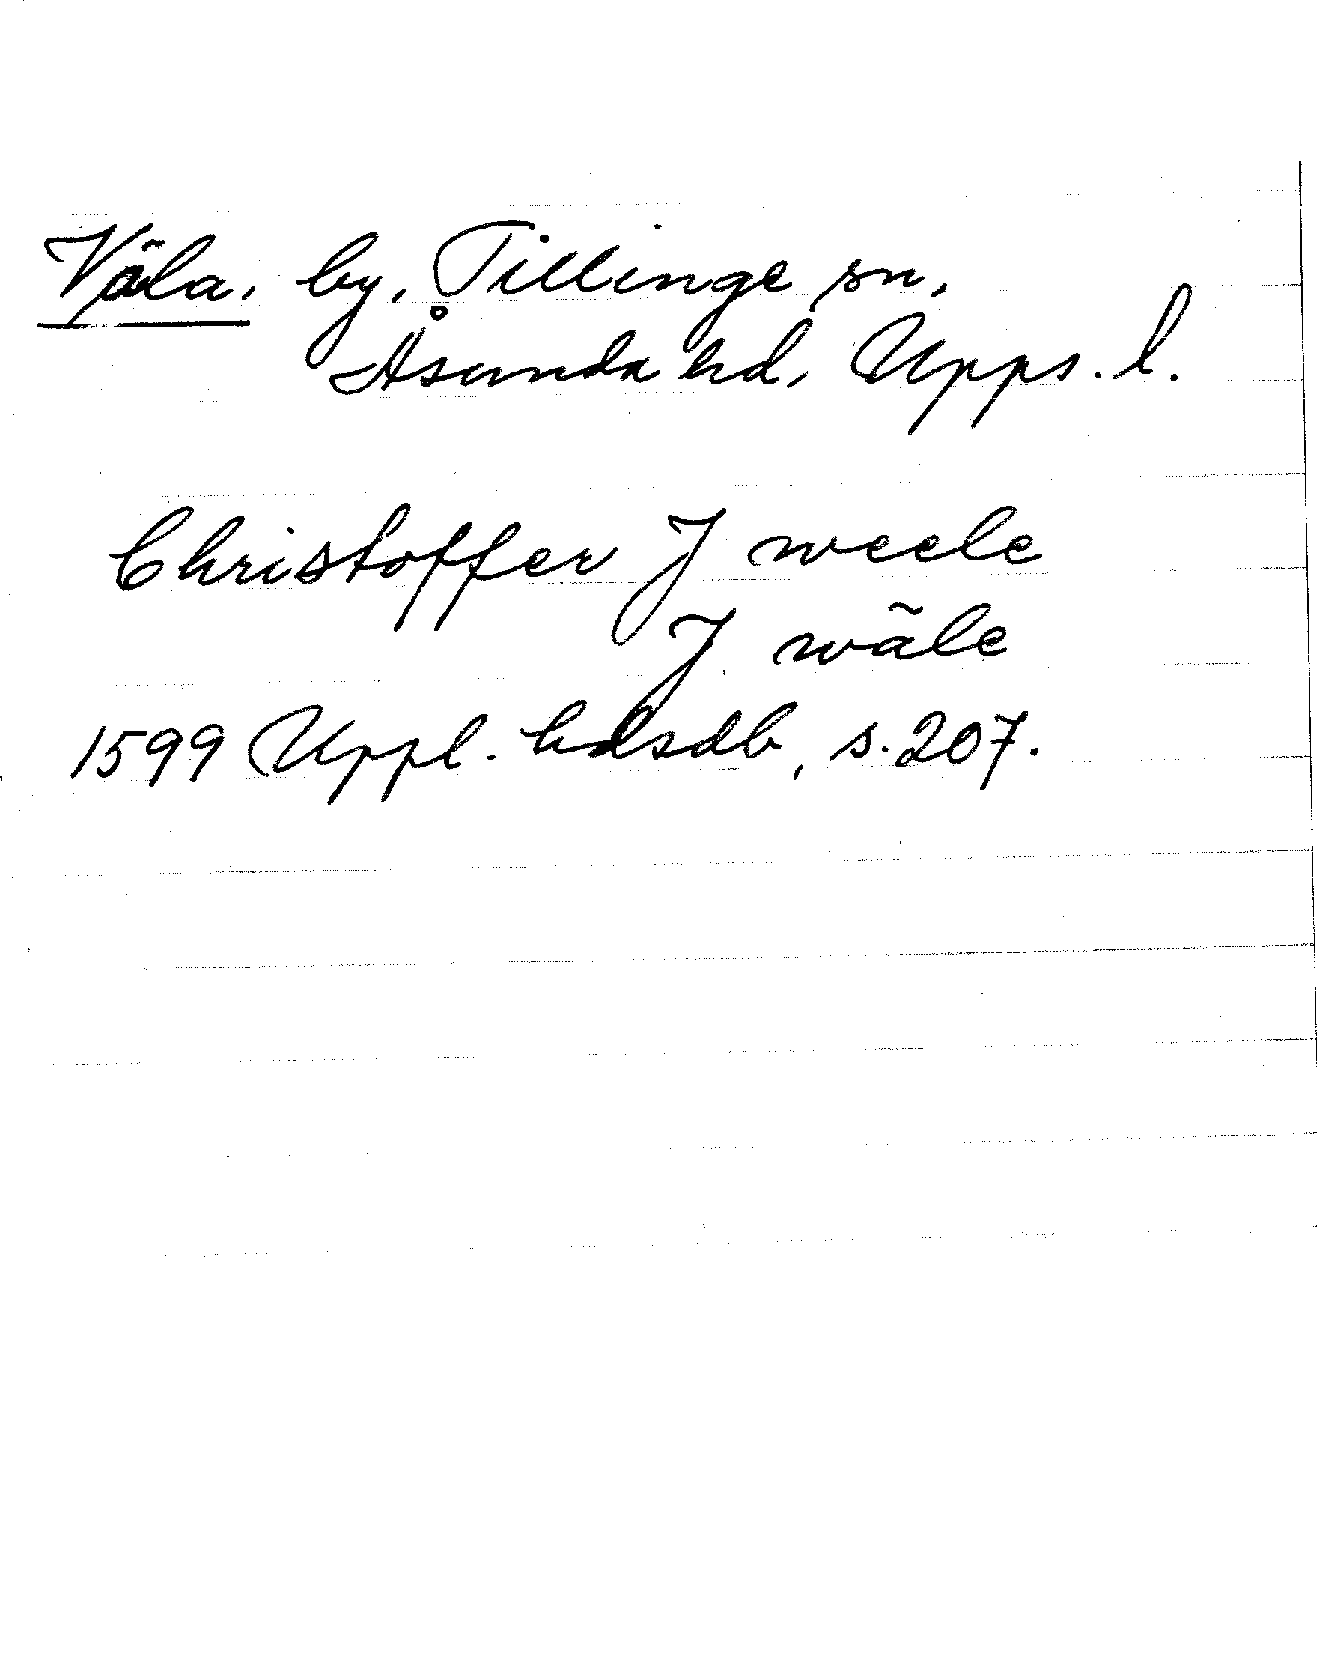 Väla, by, Tillinge sn,
Åsunda hd, Upps. l.
Christoffer J weele
J wäle
1599 Uppl. hdsdb, s. 207.